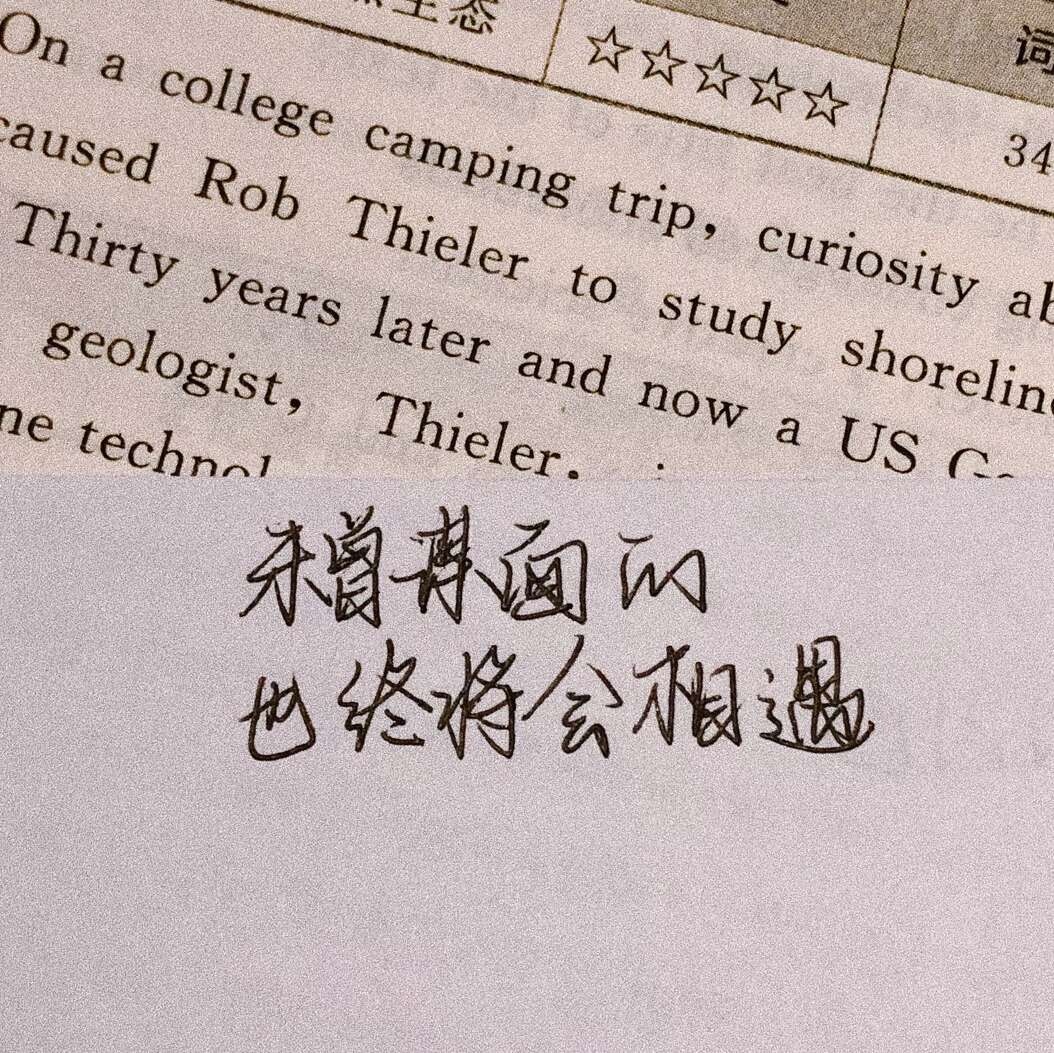 生态 ☆☆☆☆☆ 词
34
On a college camping trip, curiosity ab
caused Rob Thieler to study shoreline
Thirty years later and now a US
geologist, Thieler.
ne technol
未曾谋面的
也终将会相遇